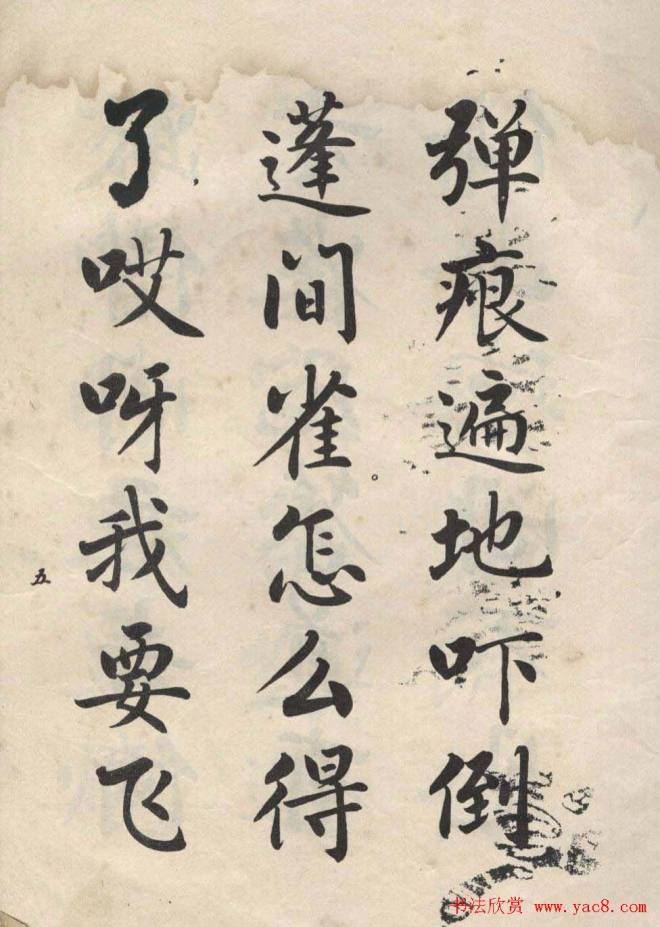 弹痕遍地吓倒
蓬间雀。怎么得
了哎呀我要飞
五
书法欣赏 www.yac8.com